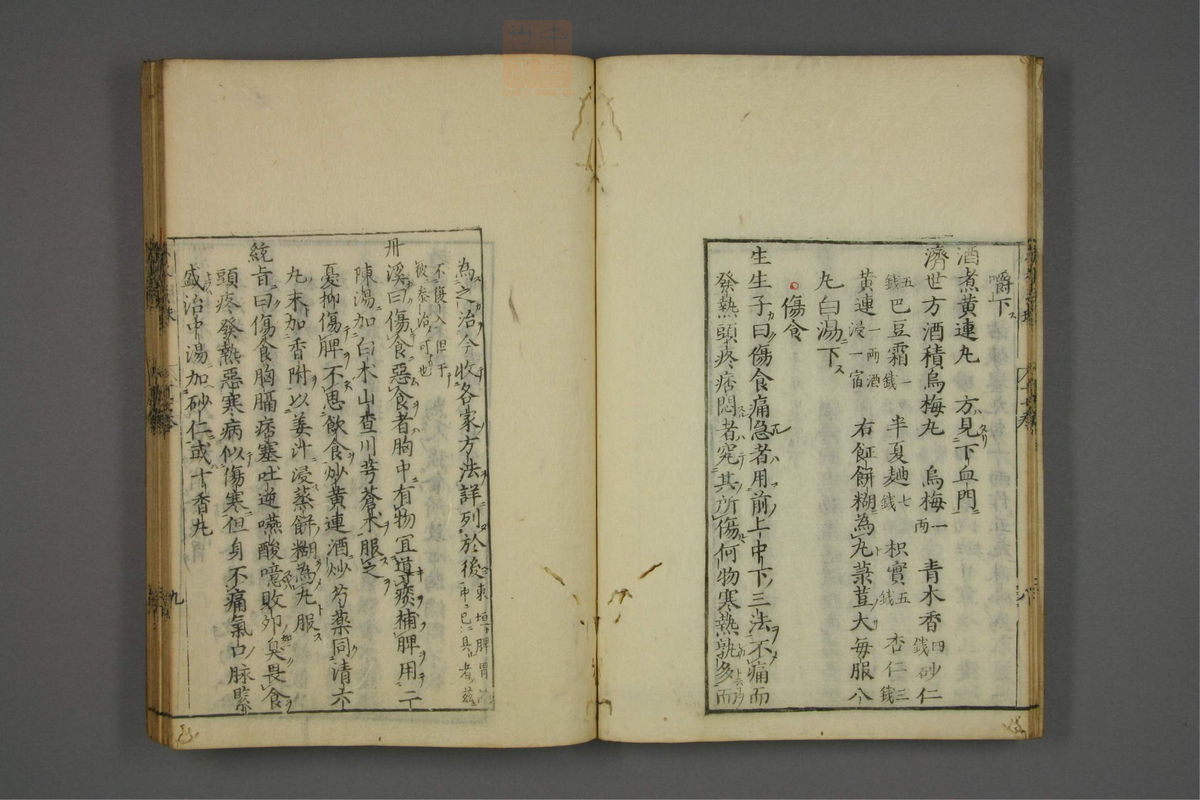 嚼下ス
酒煮黄連丸　方ハ見タリ下血門ニ
濟世方酒積烏梅丸　烏梅一兩　青木香四錢　砂仁
五錢　巴豆霜一錢　半夏麯七錢　枳實五錢　杏仁三錢
黄連一兩酒浸一宿　右䭔餅糊為丸菉荳大每服八
九白湯ニ下ス
傷食
生生子曰傷食痛急者用前上中下三法不痛而
發熱頭疼痞悶者究其所傷何物寒熱孰多而
為之治今收各家方法詳列於後東垣脾胃論中已具者茲
不復入但于彼參治可也
丹溪曰傷食惡食者胸中有物宜導痰補脾用二
陳湯加白朮山查川芎蒼朮服之
憂抑傷脾不思飲食炒黄連酒炒芍藥同清六
丸末加香附以姜汁浸蒸餅糊為丸服
統旨曰傷食胸膈痞塞吐逆嚥酸噫敗卵臭畏食
頭疼發熱惡寒病似傷寒但身不痛氣口脉緊
盛治中湯加砂仁或十香丸
九